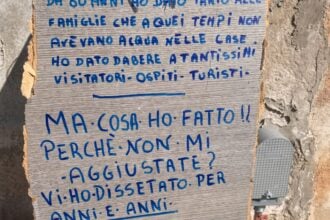 DA 80 ANNI HO DATO TANTO ALLE
FAMIGLIE CHE A QUEI TEMPI NON
AVEVANO ACQUA NELLE CASE.
HO DATO DABERE A TANTISSIMI
VISITATORI-OSPITI-TURISTI-
MA·COSA·HO·FATTO!!
PERCHÈ·NON·MI
-AGGIUSTATE?
VI·HO·DISSETATO·PER
ANNI·E·ANNI·